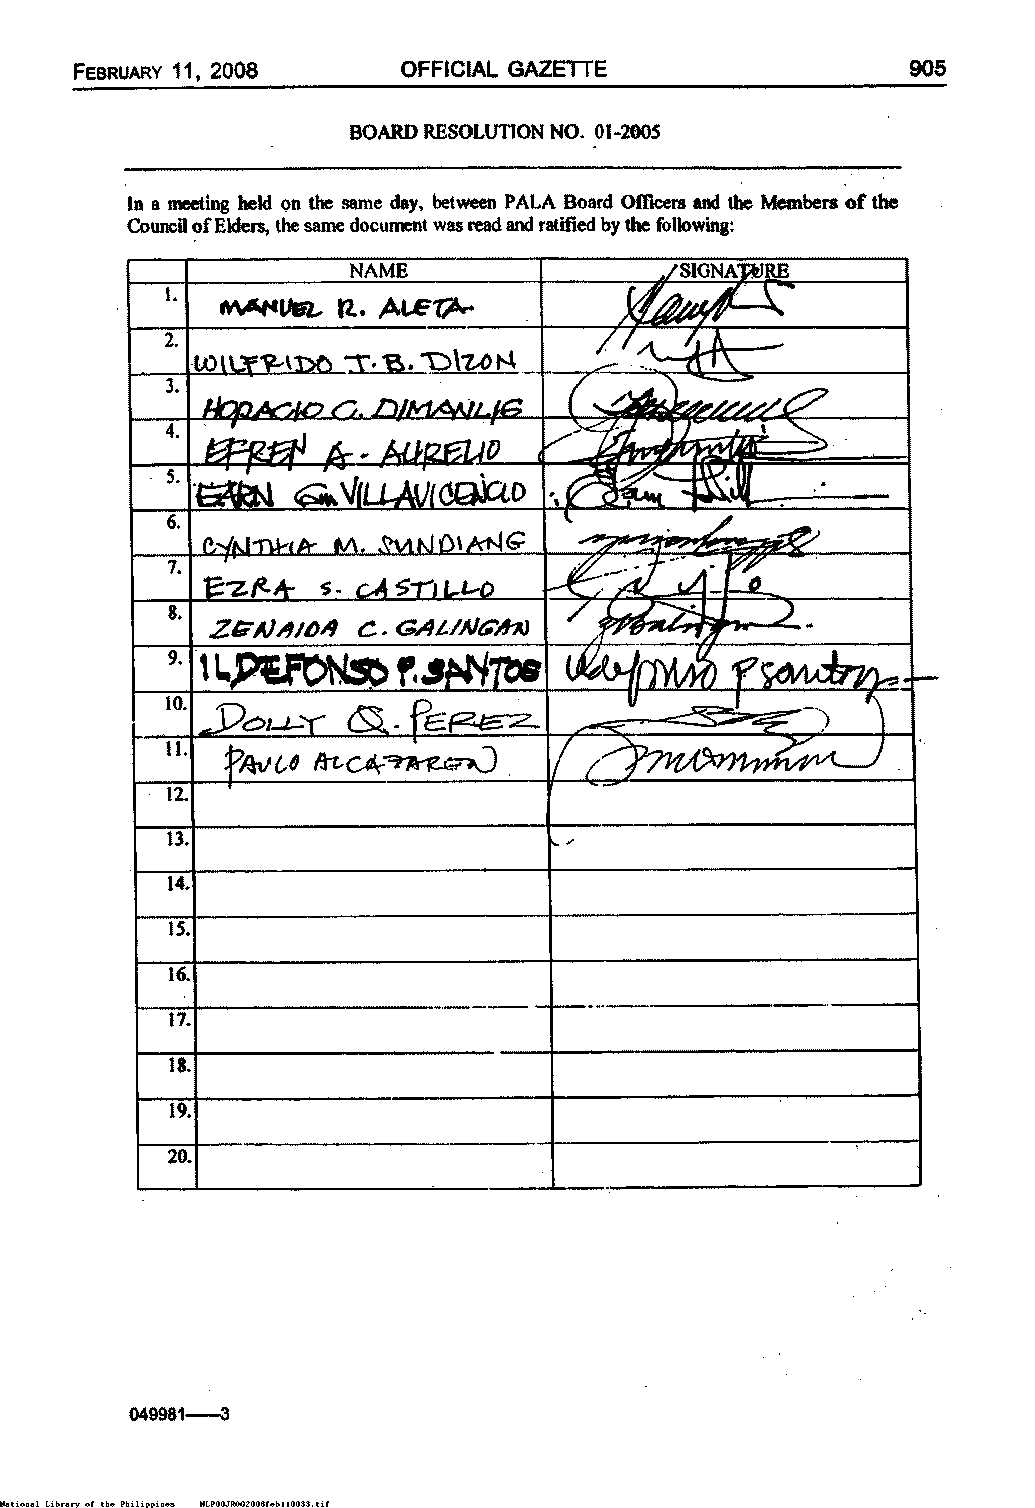 FEBRUARY 11, 2008 OFFICIAL GAZETTE 905
BOARD RESOLUTION NO. 01-2005
In a meeting held on the same day, between PALA Board Officers and the Members of the
Council of Elders, the same document was read and ratified by the following:
NAME SIGNATURE
1. MANUEL R. ALETA
2. WILFRIDO T.B. DIZON
3. HORACIO C. DIMANLIG
4. EFREN A. AURELIO
5. EARN Gm VILLAVICENCIO
6. CYNTHIA M. SUNDIANG
7. EZRA S. CASTILLO
8. ZENAIDA C. GALINGAN
9. ILDEFONSO P. SANTOS Ildefonso P Santos
10. DOLLY Q. PEREZ
11. PAULO ALCAZAREN
12.
13.
14.
15.
16.
17.
18.
19.
20.
049981——3
National Library of the Philippines NLP00JROG2008feb110033.tif